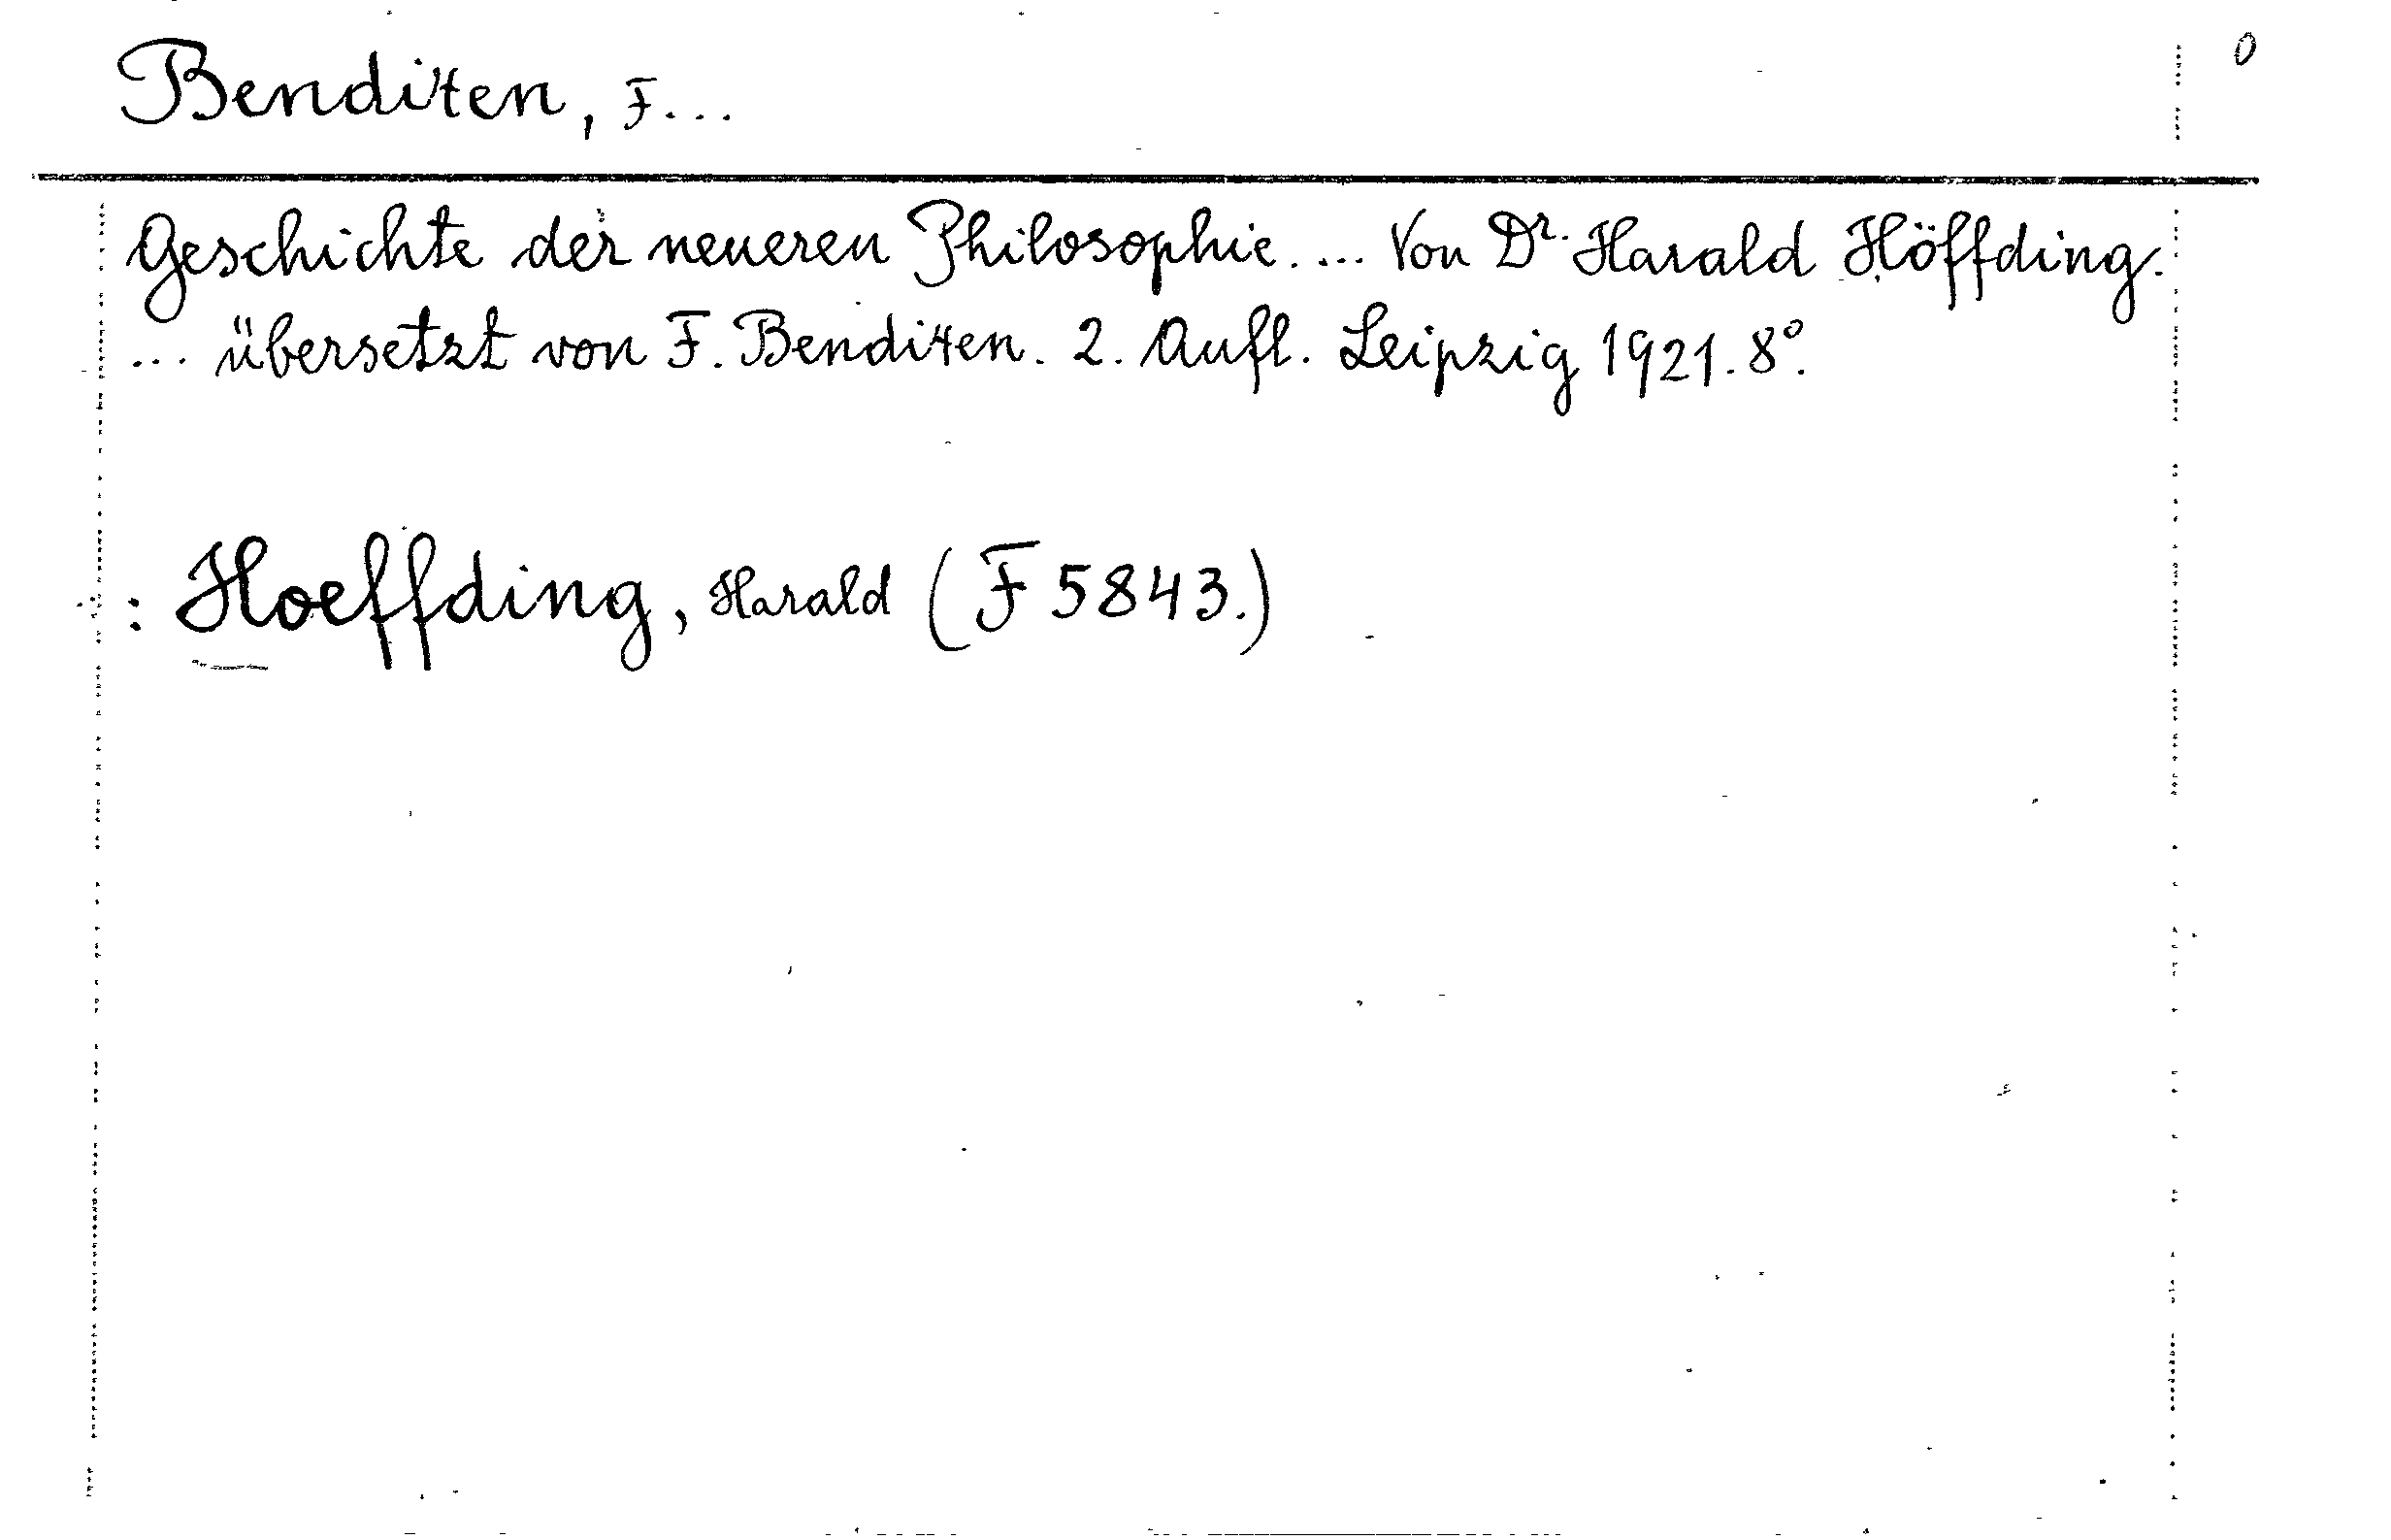 Bendixen, F... 0
Geschichte der neueren Philosophie. ... Von Dr. Harald Höffding.
... übersetzt von F. Bendixen. 2. Aufl. Leipzig 1921. 8°.
: Hoeffding, Harald (F 5843.)